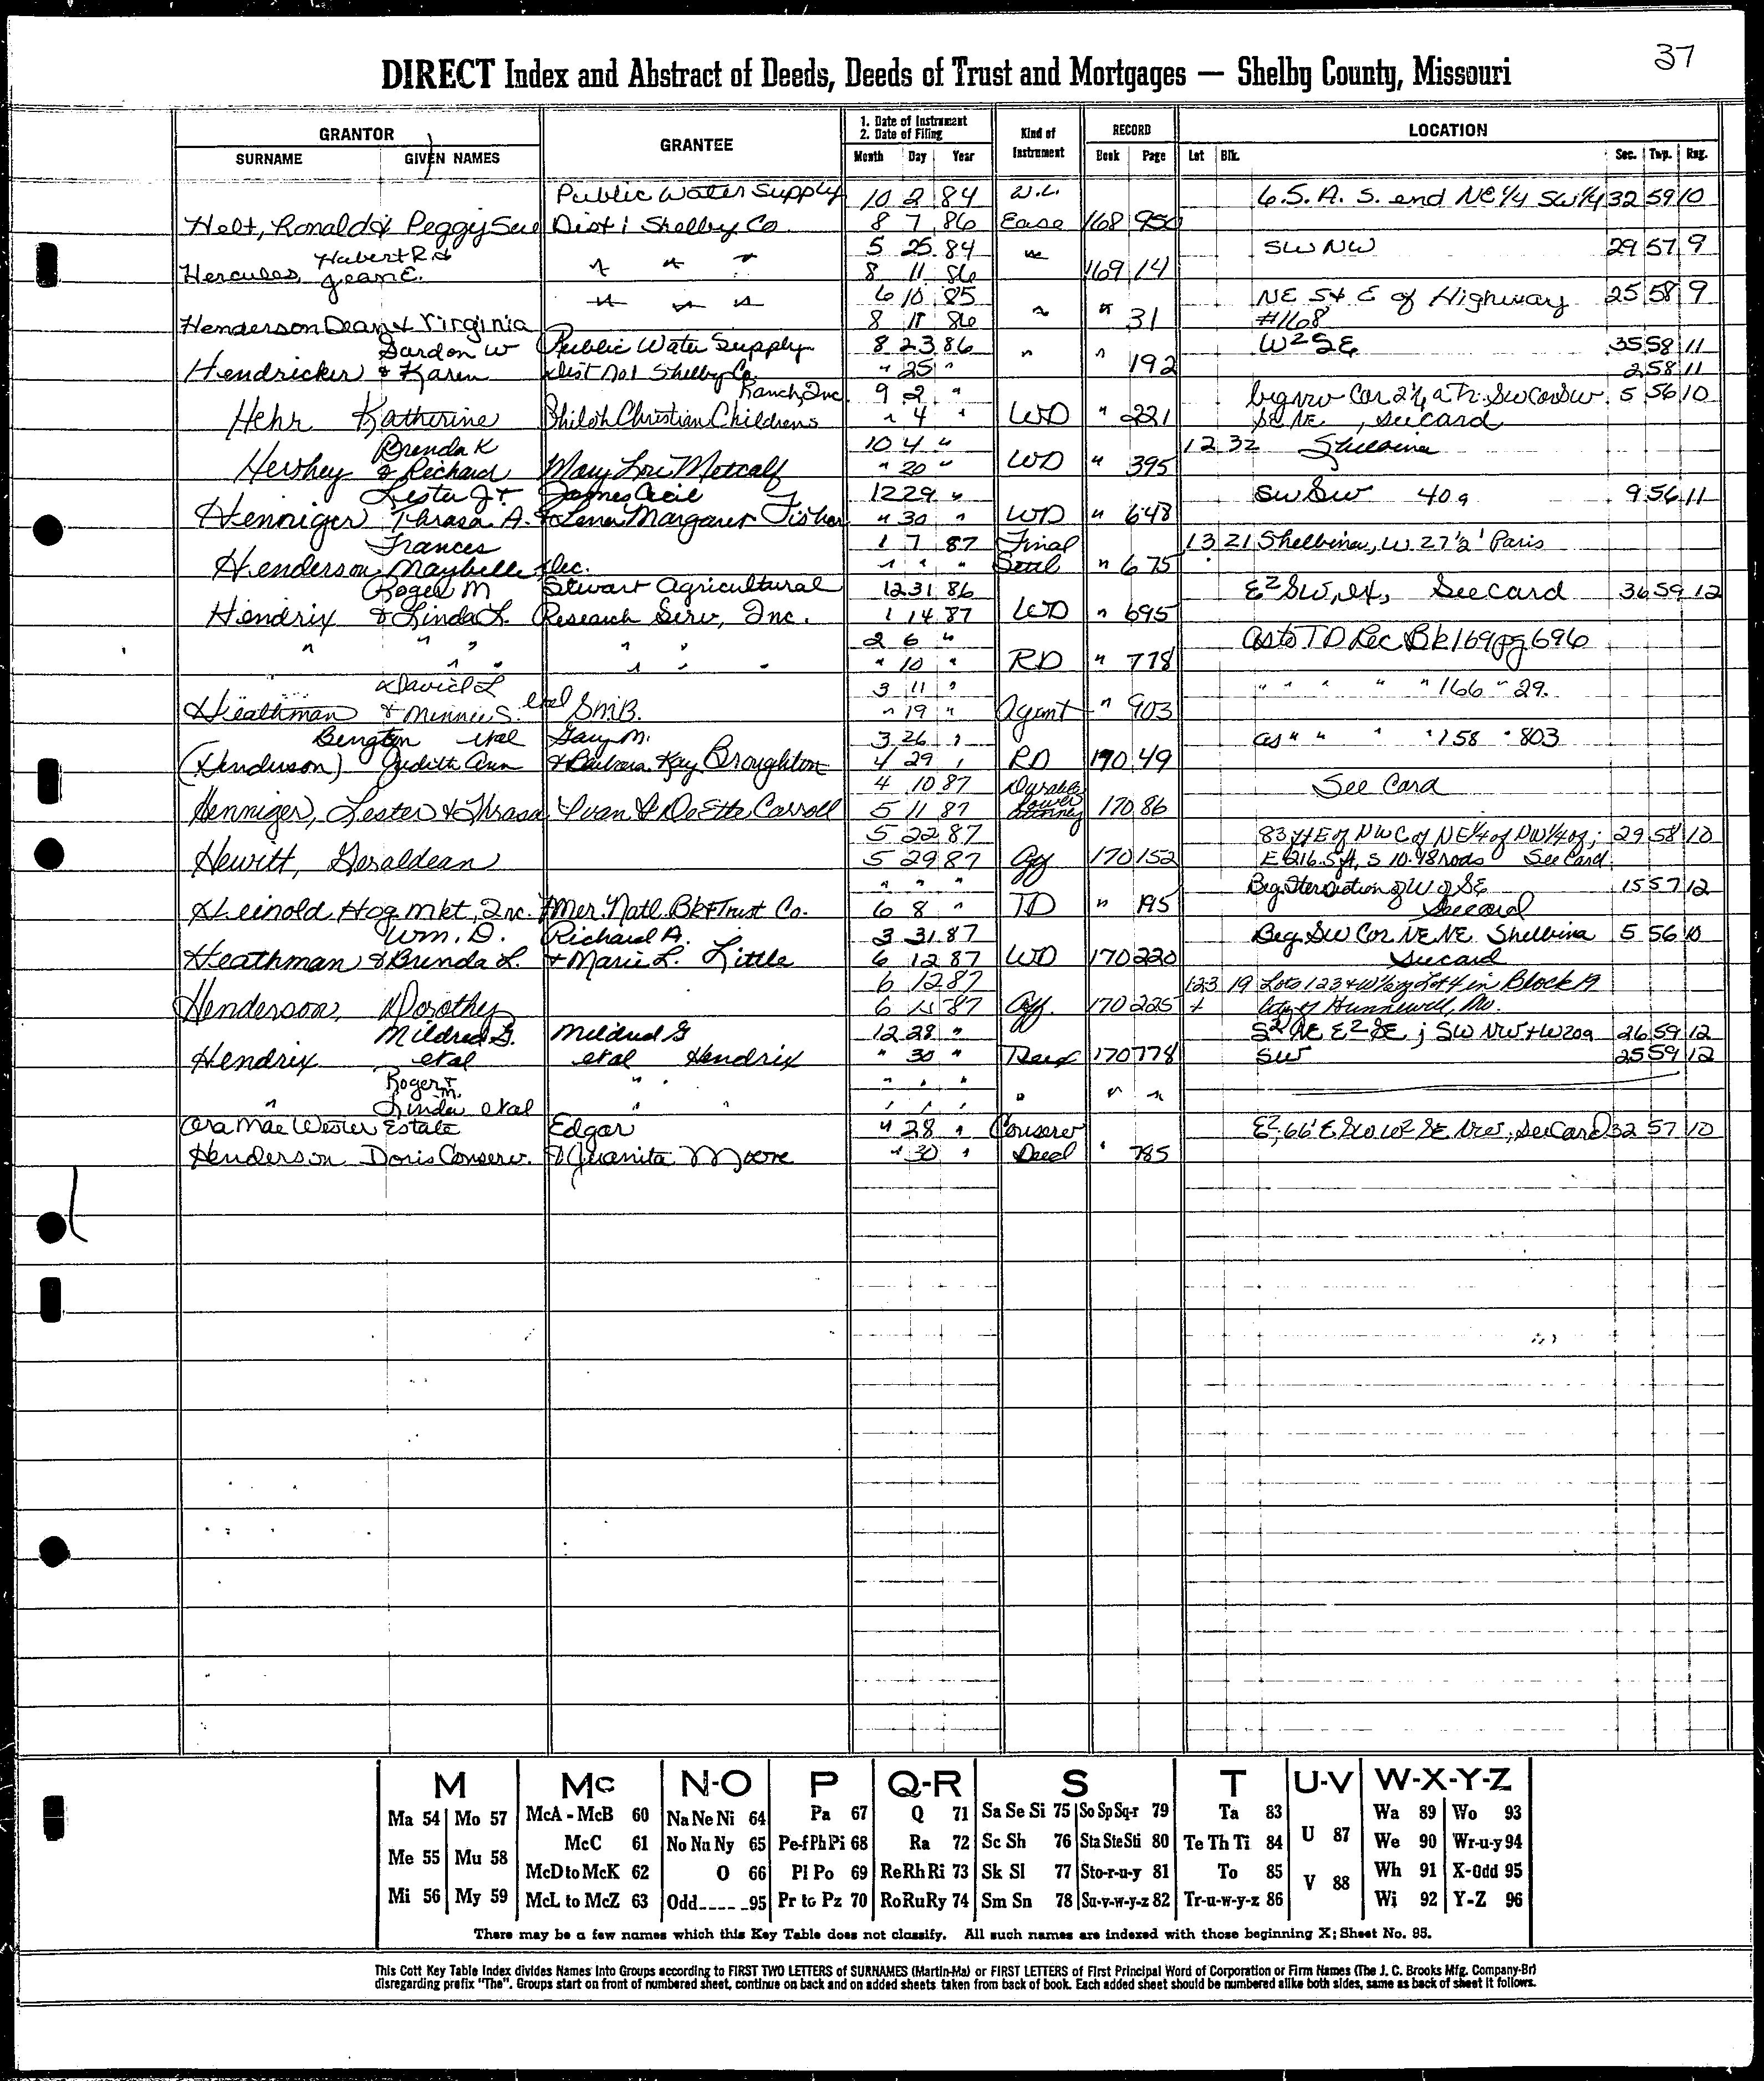 37
DIRECT Index and Abstract of Deeds, Deeds of Trust and Mortgages — Shelby County, Missouri
GRANTOR GRANTEE 1. Date of Instrument 2. Date of Filing Kind of Instrument RECORD LOCATION
SURNAME GIVEN NAMES Month Day Year Book Page Lot Blk. Sec. Twp. Rng.
Public Water Supply 10 2 84 W.L. 6.5 A. S. end NE 1/4 SW 1/4 32 59 10
Helt, Ronald & Peggy Sue Dist 1 Shelby Co 8 7 86 Ease 168 950
Hubert R & 5 25 84 " SW NW 29 57 9
Hercules, Jean E. " " " 8 11 86 169 14
" " " 6 10 85 NE S & E of Highway 25 58 9
Henderson Dean & Virginia 8 11 86 " " 31 #168
Gardon W Public Water Supply 8 23 86 " W2 SE 35 58 11
Hendricker & Karen Dist No 1 Shelby Co. " 25 " " 192 2 58 11
Ranch, Inc 9 2 " beg NW Cor 2 1/4 a Tr. SW Cor SW 5 56 10
Hehr Katherine Shiloh Christian Childrens " 4 " WD " 221 SE NE, see card
Brenda K 10 4 " 12 32 Shelbina
Hershey & Richard Mary Lou Metcalf " 20 " WD " 395
Lester J & James Cecil 12 29 " SW SW 40 a 9 56 11
Henniger Thrasa A. & Lena Margaret Fisher " 30 " WD " 648
Frances 1 7 87 Final 13 21 Shelbina, W 27 1/2' Paris
Henderson Maybelle dec. " " " Settl " 675
Roger M Stewart Agricultural 12 31 86 E2 SW, ex, See card 36 59 12
Hendrix & Linda L. Research Serv, Inc. 1 14 87 WD " 695
" " " " " 2 6 " As to TD Rec Bk 169 pg 696
" " " " " " 10 " RD " 778
David L 3 11 " " " " " " 166 " 29.
Heathman & Minnie S. etal SMB. " 19 " Agmt " 903
Bengten etal Gary M. 3 26 " as " " " " 158 " 803
(Henderson) Judith Ann & Barbara Kay Broughton 4 29 " RD 170 49
4 10 87 Durable See Card
Henniger, Lester & Thrasa Ivan & DeEtta Carroll 5 11 87 Power Attorney 170 86
5 22 87 83 ft E of NW C of NE 1/4 of NW 1/4 of; 29 58 10
Hewitt, Geraldean 5 29 87 Aff 170 152 E 216.5 ft, S 10.48 rods See Card
" " " Beg Intersection of W of SE 15 57 12
Heinold Hog Mkt, Inc. Amer. Natl. Bk & Trust Co. 6 8 " TD " 195 See card
Wm. D. Richard A. 3 31 87 Beg SW Cor NE NE Shelbina 5 56 10
Heathman & Brenda L. & Marie L. Little 6 12 87 WD 170 220 See card
6 12 87 123 19 Lots 1 2 3 & W 1/2 of Lot 4 in Block 19
Henderson, Dorothy 6 15 87 Aff. 170 225 + City of Hunnewell, Mo.
Mildred G. Mildred G 12 28 " S2 NE E2 SE; SW NW & W 20a 26 59 12
Hendrix etal etal Hendrix " 30 " Deed 170 778 SW 25 59 12
Roger M. & " " " " "
" Linda etal " " " " " " " "
Ora Mae Wester Estate Edgar " 28 " Conserv E2, 66' E SW W2 SE NW, See Card 32 57 10
Henderson Doris Conserv. & Juanita Moore " 30 " Deed " 785
M Mc N-O P Q-R S T U-V W-X-Y-Z
Ma 54 Mo 57 McA - McB 60 Na Ne Ni 64 Pa 67 Q 71 Sa Se Si 75 So Sp Sq-r 79 Ta 83 U 87 Wa 89 Wo 93
Me 55 Mu 58 McC 61 No Nu Ny 65 Pe-f Ph Pi 68 Ra 72 Sc Sh 76 Sta Ste Sti 80 Te Th Ti 84 We 90 Wr-u-y 94
McD to McK 62 O 66 Pl Po 69 Re Rh Ri 73 Sk Sl 77 Sto-r-u-y 81 To 85 V 88 Wh 91 X-Odd 95
Mi 56 My 59 McL to McZ 63 Odd 95 Pr to Pz 70 Ro Ru Ry 74 Sm Sn 78 Su-v-w-y-z 82 Tr-u-w-y-z 86 Wi 92 Y-Z 96
There may be a few names which this Key Table does not classify. All such names are indexed with those beginning X; Sheet No. 95.
This Cott Key Table Index divides Names into Groups according to FIRST TWO LETTERS of SURNAMES (Martin-Ma) or FIRST LETTERS of First Principal Word of Corporation or Firm Names (The J. C. Brooks Mfg. Company-Br)
disregarding prefix "The". Groups start on front of numbered sheet, continue on back and on added sheets taken from back of book. Each added sheet should be numbered alike both sides, same as back of sheet it follows.